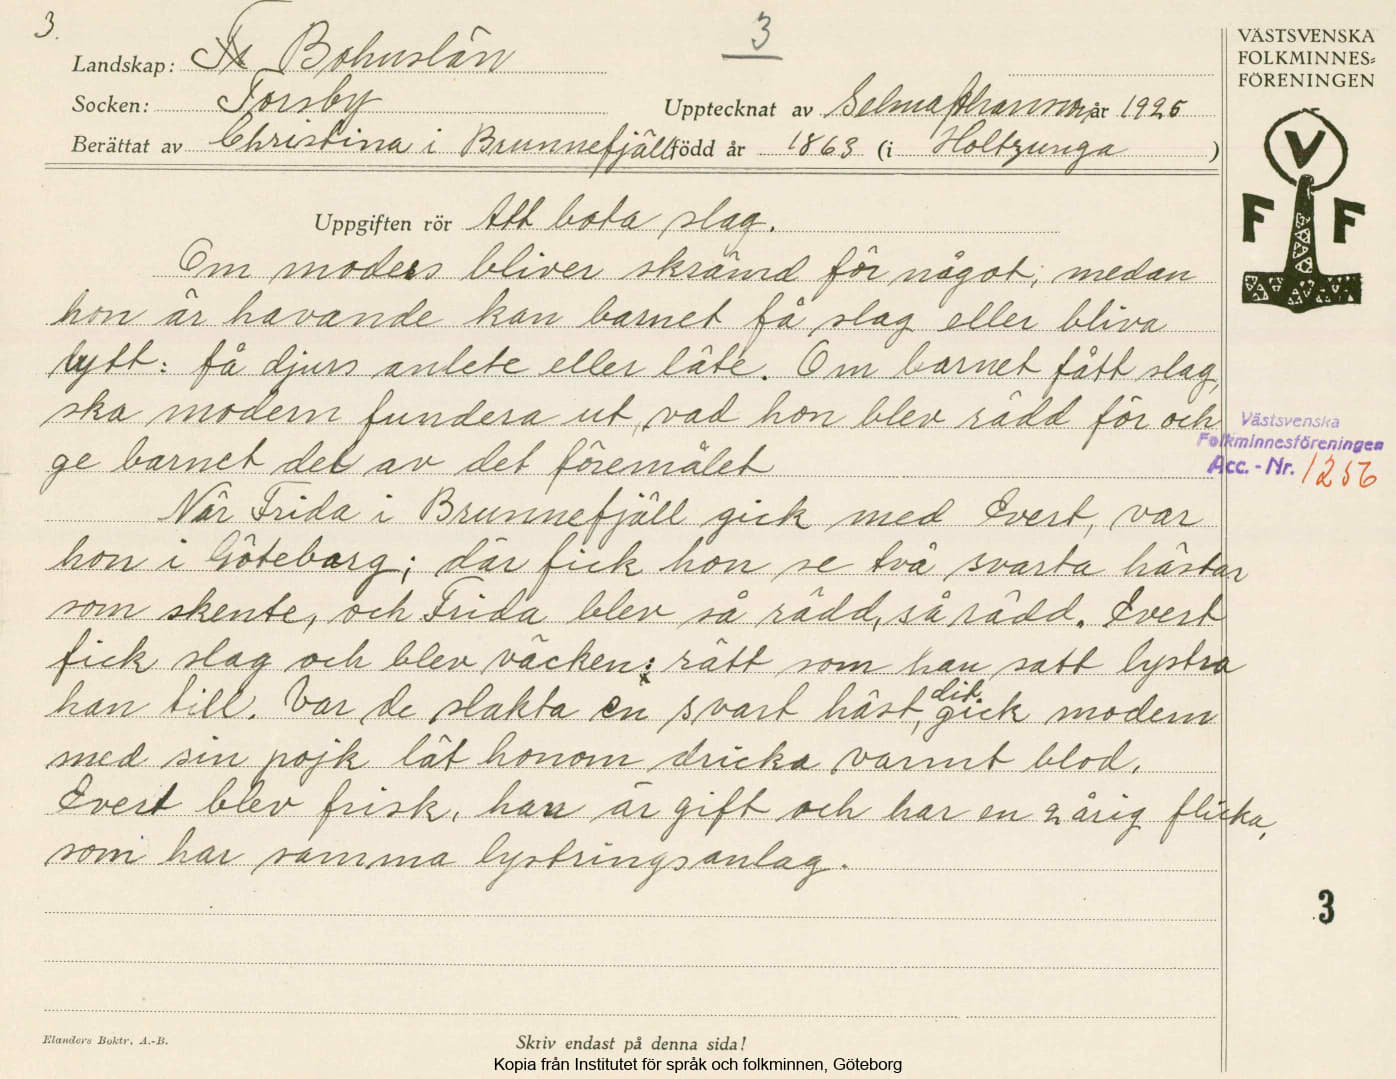 3.
3
VÄSTSVENSKA
FOLKMINNES-
FÖRENINGEN
Landskap: Bohuslän
Socken: Torsby
Upptecknat av Selma Johansson år 1925
Berättat av Christina i Brunnefjäll född år 1863 (i Holtzunga )
V
F F
Uppgiften rör Att bota slag.
Om moders bliver skrämd för något, medan
hon är havande kan barnet få slag eller bliva
lytt: få djurs anlete eller läte. Om barnet fått slag,
ska modern fundera ut, vad hon blev rädd för och
ge barnet det av det föremålet
Västsvenska
Folkminnesföreningen
Acc.-Nr. 1256
När Frida i Brunnefjäll gick med Evert, var
hon i Göteborg; där fick hon se två svarta hästar
som skente, och Frida blev så rädd, så rädd. Evert
fick slag och blev väcken: rätt som han satt lystra
han till. Var de slakta en svart häst, dit gick modern
med sin pojk lät honom dricka varmt blod.
Evert blev frisk, han är gift och har en 2 årig flicka,
som har samma lystringsanlag.
3
Elanders Boktr. A.-B.
Skriv endast på denna sida!
Kopia från Institutet för språk och folkminnen, Göteborg